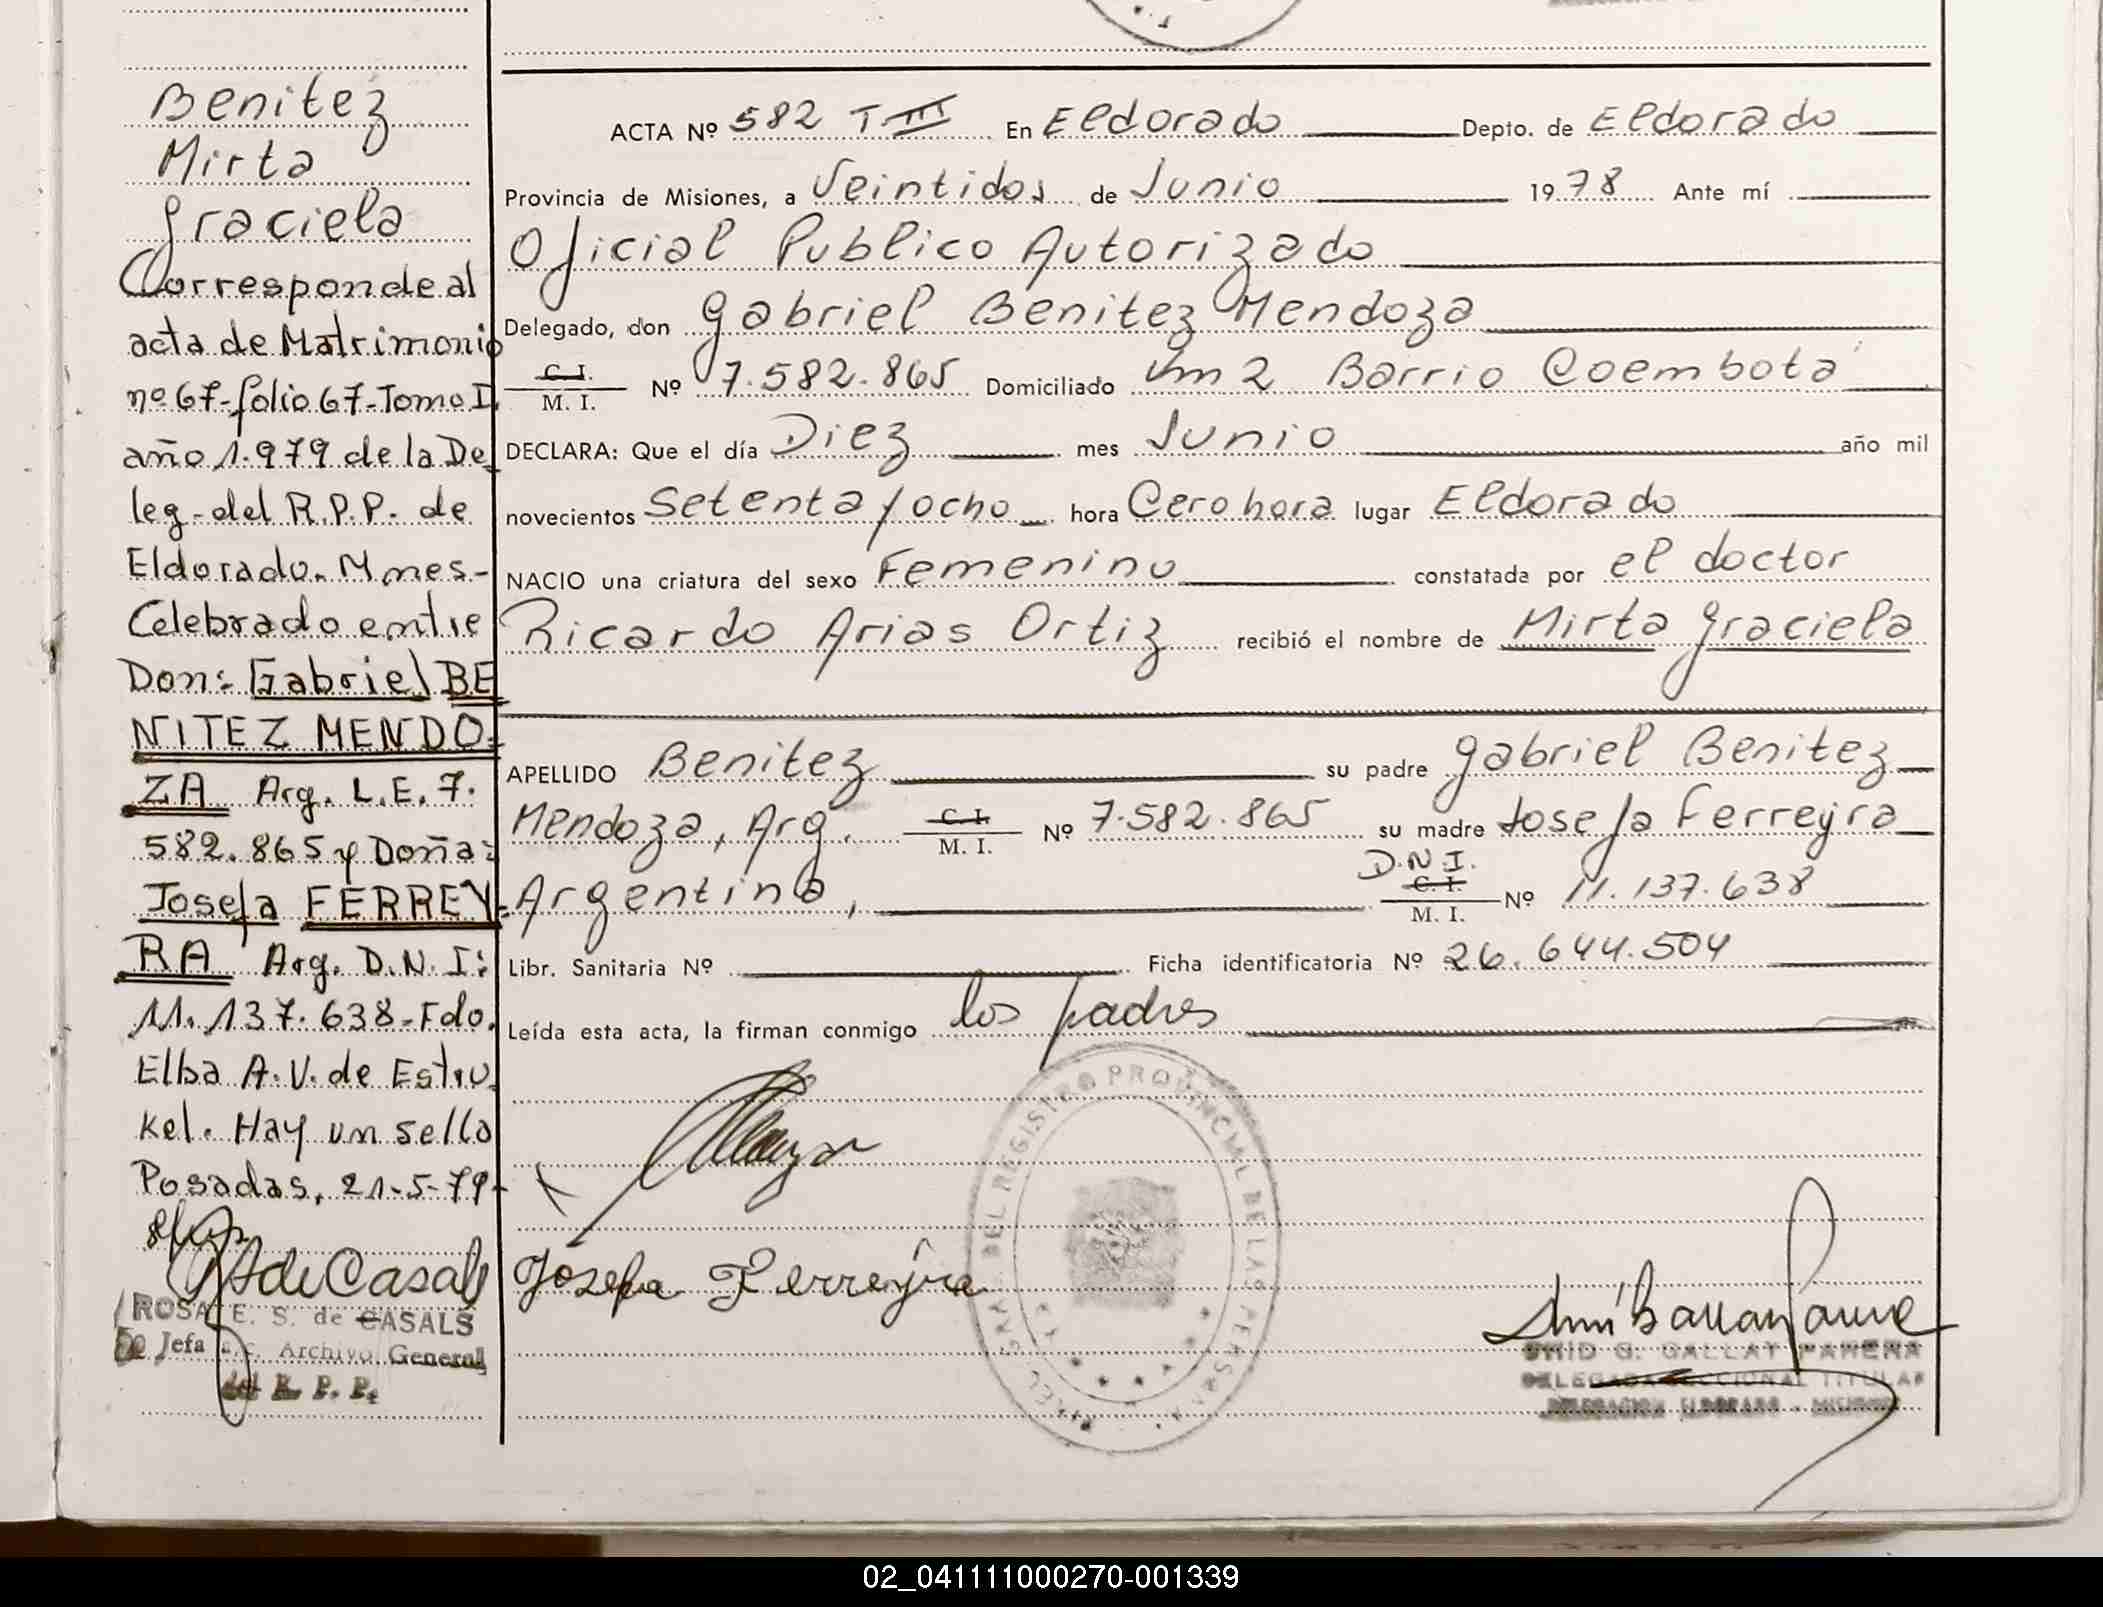 Benitez
Mirta
Graciela
Corresponde al
acta de Matrimonio
nº 67-folio 67-Tomo I
año 1.979 de la De
leg-del R.P.P. de
Eldorado. Mnes-
Celebrado entre
Don: Gabriel BE
NITEZ MENDO-
ZA Arg. L.E. 7.
582.865 y Doña:
Josefa FERREY-
RA Arg. D.N.I:
11.137.638-Fdo.
Elba A.V. de Estru
kel. Hay un sello
Posadas, 21-5-79-
de Casals
ROSA E. S. de CASALS
Jefa Archivo General
del R. P. P.
ACTA Nº 582 T III En Eldorado Depto. de Eldorado
Provincia de Misiones, a Veintidos de Junio 1978 Ante mí
Oficial Publico Autorizado
Delegado, don Gabriel Benitez Mendoza
C. I. M. I. Nº 7.582.865 Domiciliado Km 2 Barrio Coembotá
DECLARA: Que el día Diez mes Junio año mil
novecientos Setenta y ocho hora Cero hora lugar Eldorado
NACIO una criatura del sexo Femenino constatada por el doctor
Ricardo Arias Ortiz recibió el nombre de Mirta Graciela
APELLIDO Benitez su padre Gabriel Benitez
Mendoza, Arg. C. I. M. I. Nº 7.582.865 su madre Josefa Ferreyra
Argentina, D.N.I. C. I. M. I. Nº 11.137.638
Libr. Sanitaria Nº Ficha identificatoria Nº 26.644.504
Leída esta acta, la firman conmigo los padres
DEL REGISTRO PROVINCIAL DE LAS PERSONAS
Josefa Ferreyra
G. GALLAY PARERA
DELEGADA SECCIONAL TITULAR
DELEGACION ELDORADO - MISIONES
02_041111000270-001339